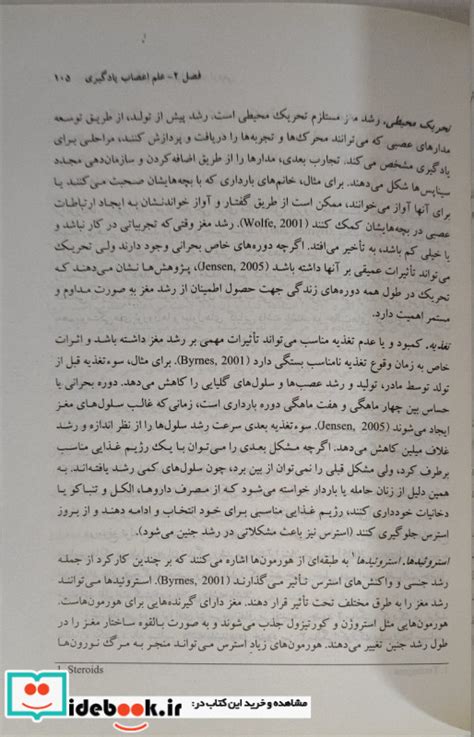 فصل ۲- علم اعصاب یادگیری ۱۰۵
تحریک محیطی. رشد مغز مستلزم تحریک محیطی است. رشد پیش از تولد، از طریق توسعه
مدارهای عصبی که می‌توانند محرک‌ها و تجربه‌ها را دریافت و پردازش کنند، مراحلی برای
یادگیری مشخص می‌کند. تجارب بعدی، مدارها را از طریق اضافه‌کردن و سازمان‌دهی مجدد
سیناپس‌ها شکل می‌دهند. برای مثال، خانم‌های بارداری که با بچه‌هایشان صحبت می‌کنند یا
برای آنها آواز می‌خوانند، ممکن است از طریق گفتار و آواز خواندنشان به ایجاد ارتباطات
عصبی در بچه‌هایشان کمک کنند (Wolfe, 2001). رشد مغز وقتی‌که تجربیاتی در کار نباشد و
یا خیلی کم باشد، به تأخیر می‌افتد. اگرچه دوره‌های خاص بحرانی وجود دارند ولی تحریک
می‌تواند تأثیرات عمیقی بر آنها داشته باشد (Jensen, 2005)، پژوهش‌ها نشان می‌دهند که
تحریک در طول همه دوره‌های زندگی جهت حصول اطمینان از رشد مغز به صورت مداوم و
مستمر اهمیت دارد.
تغذیه. کمبود و یا عدم تغذیه مناسب می‌تواند تأثیرات مهمی بر رشد مغز داشته باشد و اثرات
خاص به زمان وقوع تغذیه نامناسب بستگی دارد (Byrnes, 2001). برای مثال، سوءتغذیه قبل از
تولد توسط مادر، تولید و رشد عصب‌ها و سلول‌های گلیایی را کاهش می‌دهد. دوره بحرانی یا
حساس بین چهار ماهگی و هفت ماهگی دوره بارداری است، زمانی که غالب سلول‌های مغز
ایجاد می‌شوند (Jensen, 2005). سوءتغذیه بعدی سرعت رشد سلول‌ها را از نظر اندازه و رشد
غلاف میلین کاهش می‌دهد. اگرچه مشکل بعدی را می‌توان با یک رژیم غذایی مناسب
برطرف کرد، ولی مشکل قبلی را نمی‌توان از بین برد، چون سلول‌های کمی رشد یافته‌اند. به
همین دلیل از زنان حامله یا باردار خواسته می‌شود که از مصرف داروها، الکل و تنباکو یا
دخانیات خودداری کنند، رژیم غذایی مناسبی برای خود انتخاب و ادامه دهند و از بروز
استرس جلوگیری کنند (استرس نیز باعث مشکلاتی در رشد جنین می‌شود).
استروئیدها. استروئیدها۱ به طبقه‌ای از هورمون‌ها اشاره می‌کنند که بر چندین کارکرد از جمله
رشد جنسی و واکنش‌های استرس تأثیر می‌گذارند (Byrnes, 2001). استروئیدها می‌توانند
رشد مغز را به طرق مختلف تحت تأثیر قرار دهند. مغز دارای گیرنده‌هایی برای هورمون‌هاست.
هورمون‌هایی مثل استروژن و کورتیزول جذب می‌شوند و به صورت بالقوه ساختار مغز را در
طول رشد جنین تغییر می‌دهند. هورمون‌های زیاد استرس می‌تواند منجر به مرگ نورون‌ها
1. Steroids
idebook.ir
مشاهده و خرید این کتاب در: